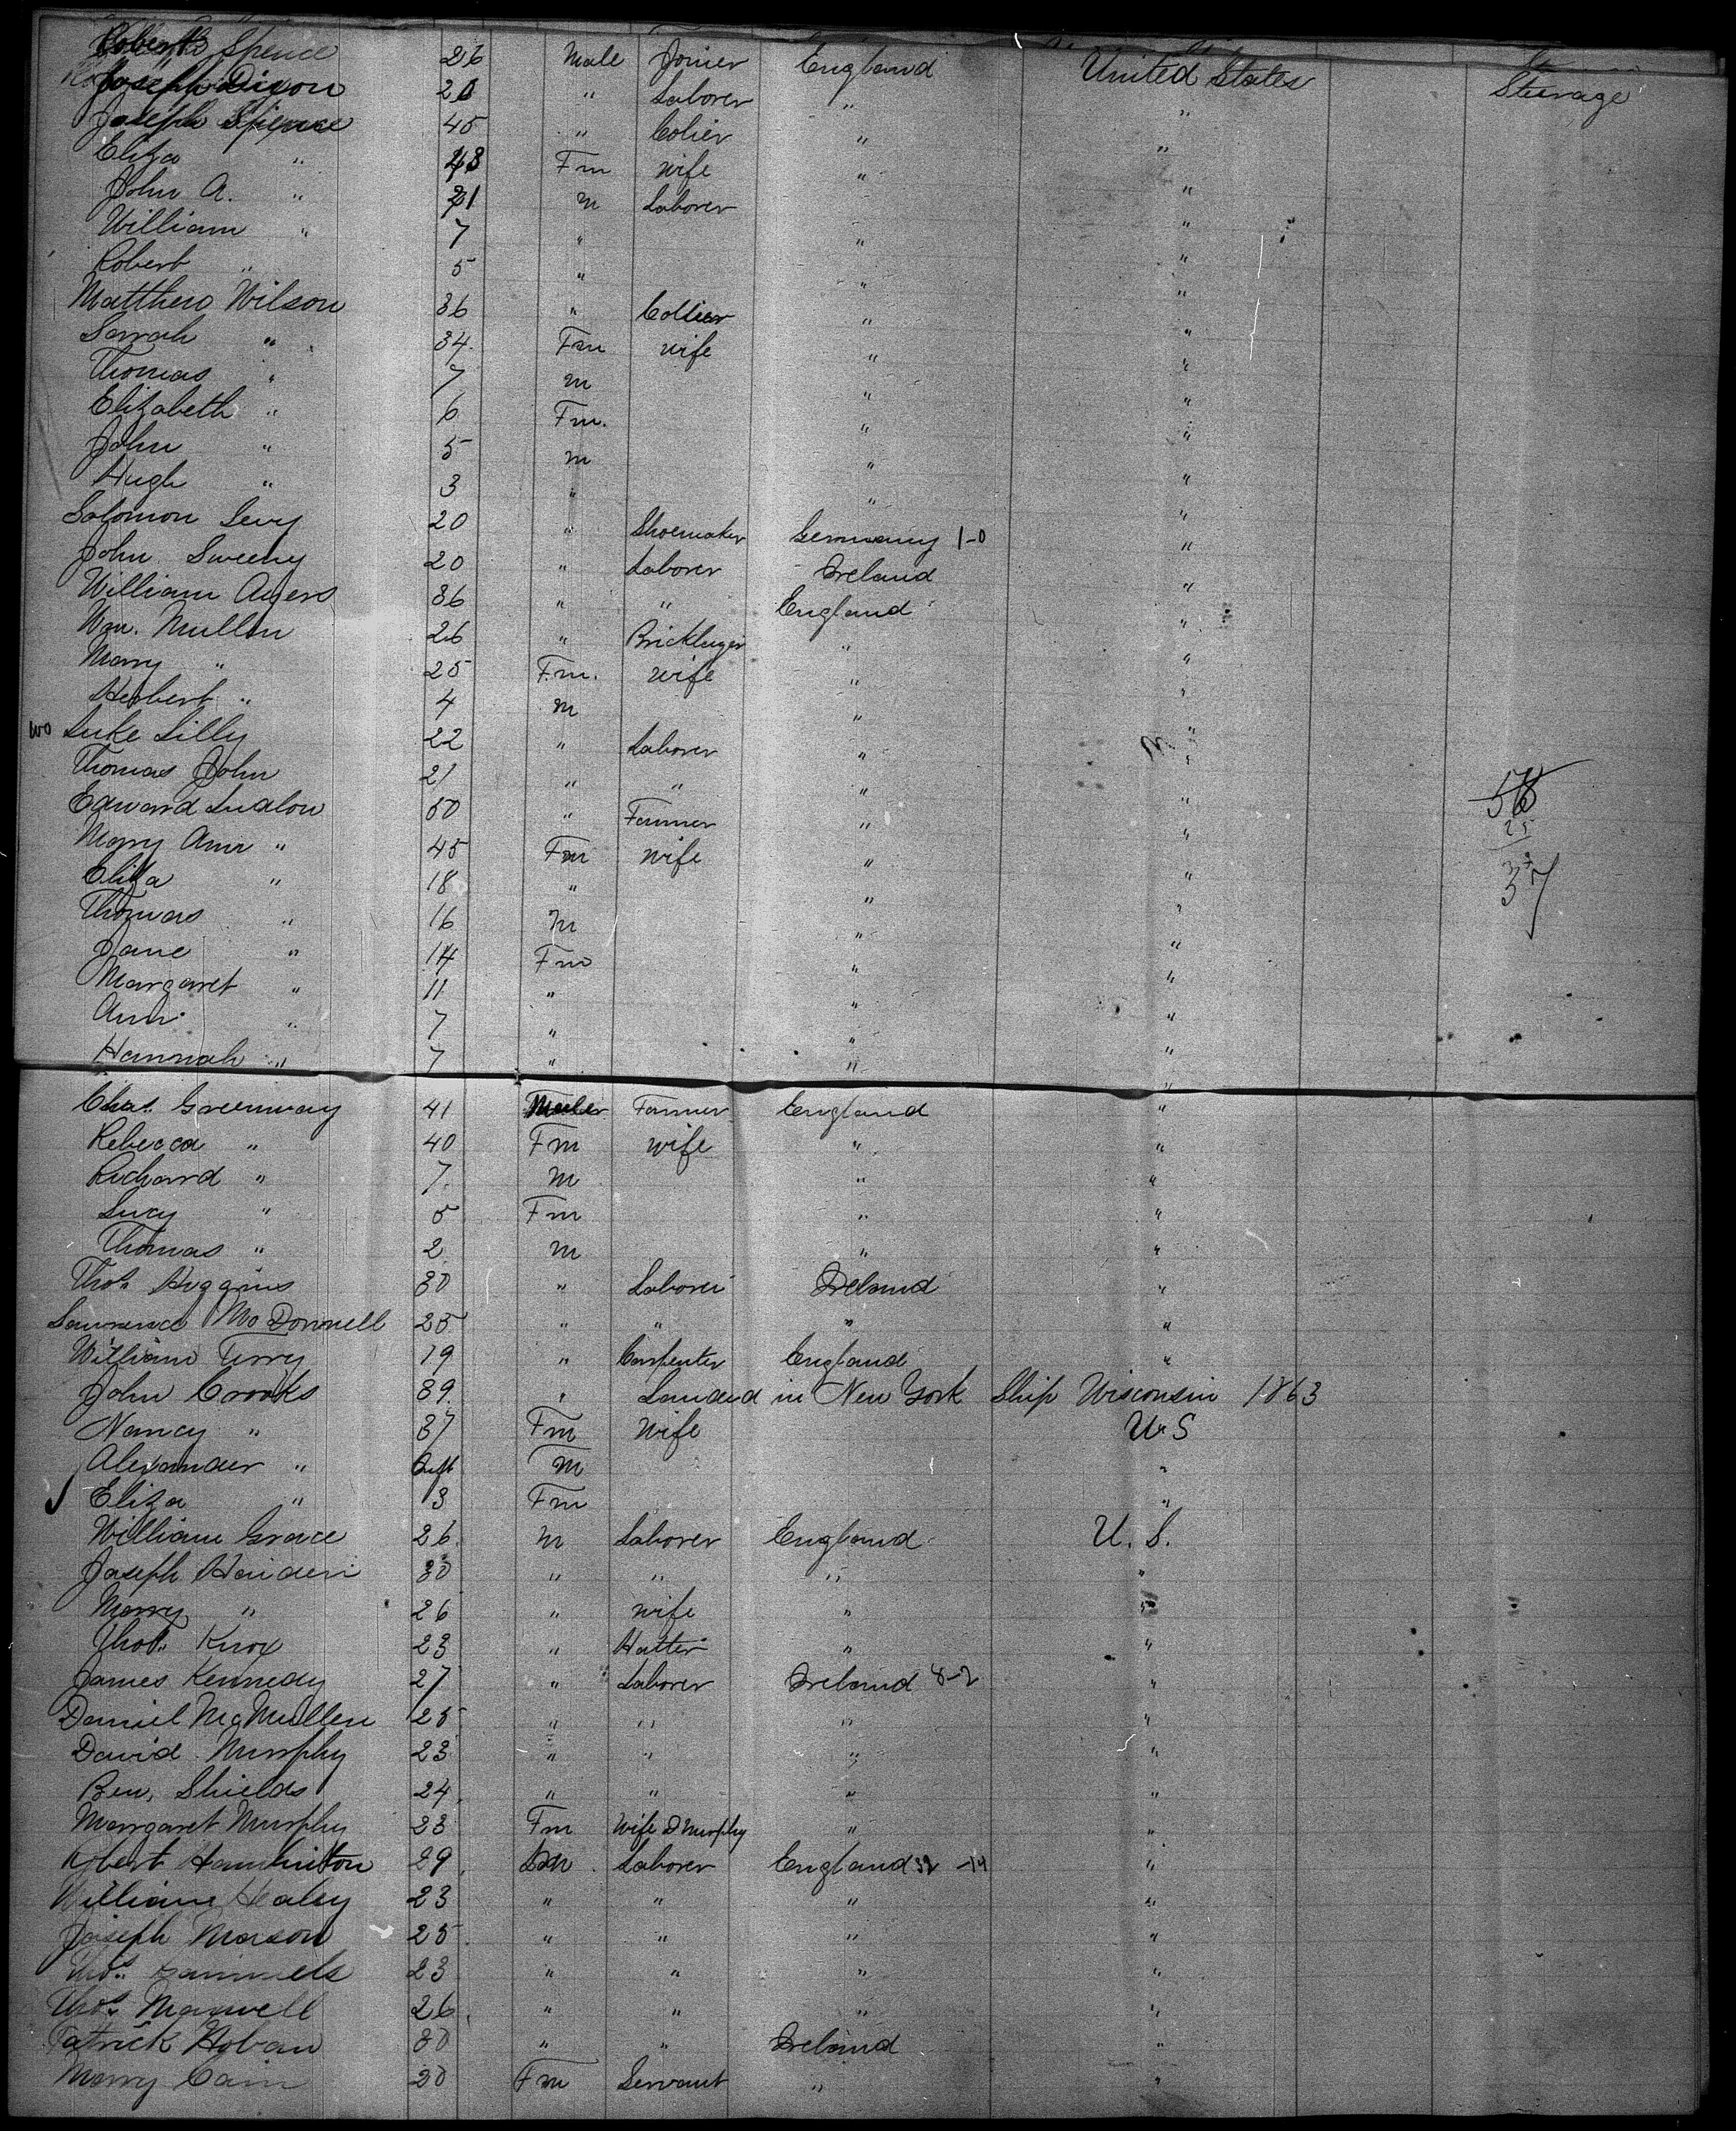 Robert Spence 26 Male Joiner England United States Steerage
Joseph Dixon 20 " Laborer " "
Joseph Spence 45 " Colier " "
Eliza " 43 Fm wife " "
John A. " 21 m Laborer "
William " 7 " " "
Robert " 5 " " "
Matthew Wilson 36 " Collier " "
Sarrah " 34 Fm wife " "
Thomas " 7 m " "
Elizabeth " 6 Fm. " "
John " 5 m " "
Hugh " 3 " " "
Solomon Levy 20 " Shoemaker Germany 1-0 "
John Sweeny 20 " Laborer Ireland "
William Ayers 36 " " England "
Wm. Mullen 26 " Bricklayer " "
Mary " 25 Fm. wife " "
Herbert " 4 m " "
Luke Lilly 22 " Laborer " "
Thomas John 21 " " " "
Edward Ludlow 50 " Farmer " "
Mary Ann " 45 Fm wife " "
Eliza " 18 " " " 37
Thomas " 16 m " "
Jane " 14 Fm " "
Margaret " 11 " " "
Ann " 7 " " "
Hannah " 7 " " "
Chas. Greenway 41 Male Farmer England "
Rebecca " 40 Fm wife " "
Richard " 7 m " "
Lucy " 5 Fm " "
Thomas " 2 m " "
Thos. Higgins 30 " Laborer Ireland "
Lawrence McDonnell 25 " " " "
William Terry 19 " Carpenter England "
John Crooks 39 " Landed in New York Ship Wisconsin 1863
Nancy " 37 Fm Wife U.S
Alexander " Inft m "
Eliza " 3 Fm "
William Grace 26 m Laborer England U.S.
Joseph 30 " " " "
Mary " 26 " wife " "
Thos. Knox 23 " Hatter " "
James Kennedy 27 " Laborer Ireland 8-2 "
Daniel McMullen 25 " " " "
David Murphy 23 " " " "
Ben. Shields 24 " " " "
Margaret Murphy 23 Fm Wife D Murphy " "
Robert Hamilton 29 m Laborer England 32 -14 "
William Healey 23 " " " "
Joseph Mason 25 " " " "
Thos. 23 " " " "
Thos. Maxwell 26 " " " "
Patrick Hoban 30 " " Ireland "
Mary Cain 20 Fm Servant " "